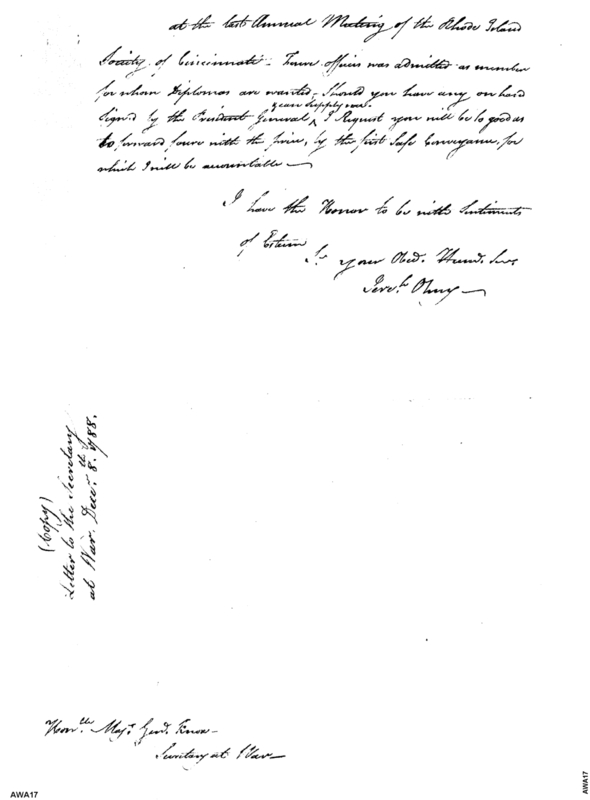 at the last Annual Meeting of the Rhode Island
Society of Cincinnati - Four officers was admitted as member
for whom Diplomas are wanted - Should you have any on hand
& can supply me
Signed by the President General ^ I Request you will be so good as
to forward four with the price, by the first Safe Conveyance, for
which I will be accountable —
I have the Honor to be with Sentiments
of Esteem
Sr. your Obed. Humb. Serv.
Jerch. Olney —
(Copy)
Letter to the Secretary
at War. Decr. 8.th 1788.
Honble. Majr. Genl. Knox -
Secretary at War —
AWA17
AWA17